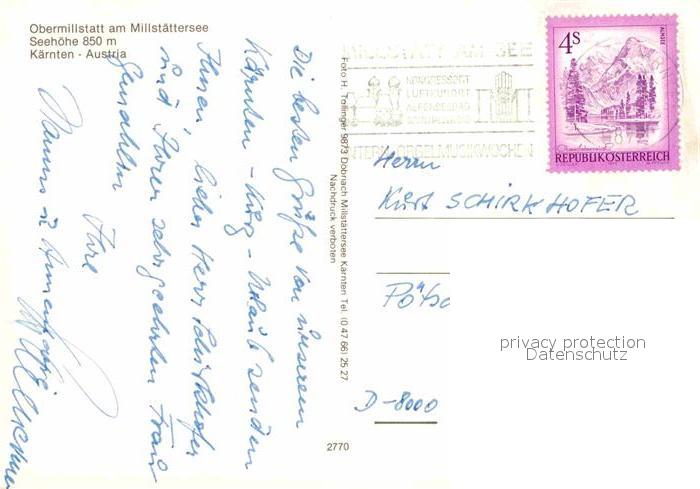 Obermillstatt am Millstättersee
Seehöhe 850 m
Kärnten - Austria
Die besten Grüße von unserem
Kärnten - Kurz - Urlaub senden
Ihnen, lieber Herr Schirkhofer
und Ihrer sehr geehrten Frau
Gemahlin
Ihre
Hanns u. Annemarie
Foto H. Tollinger 9873 Döbriach Millstättersee Kärnten Tel. (0 47 66) 25 27
Nachdruck verboten
2770
MILLSTATT AM SEE
KONGRESSORT
LUFTKURORT
INTERN. ORGELMUSIKWOCHEN
4 S
REPUBLIK ÖSTERREICH
Herrn
Kurt SCHIRKHOFER
D-8000
privacy protection
Datenschutz